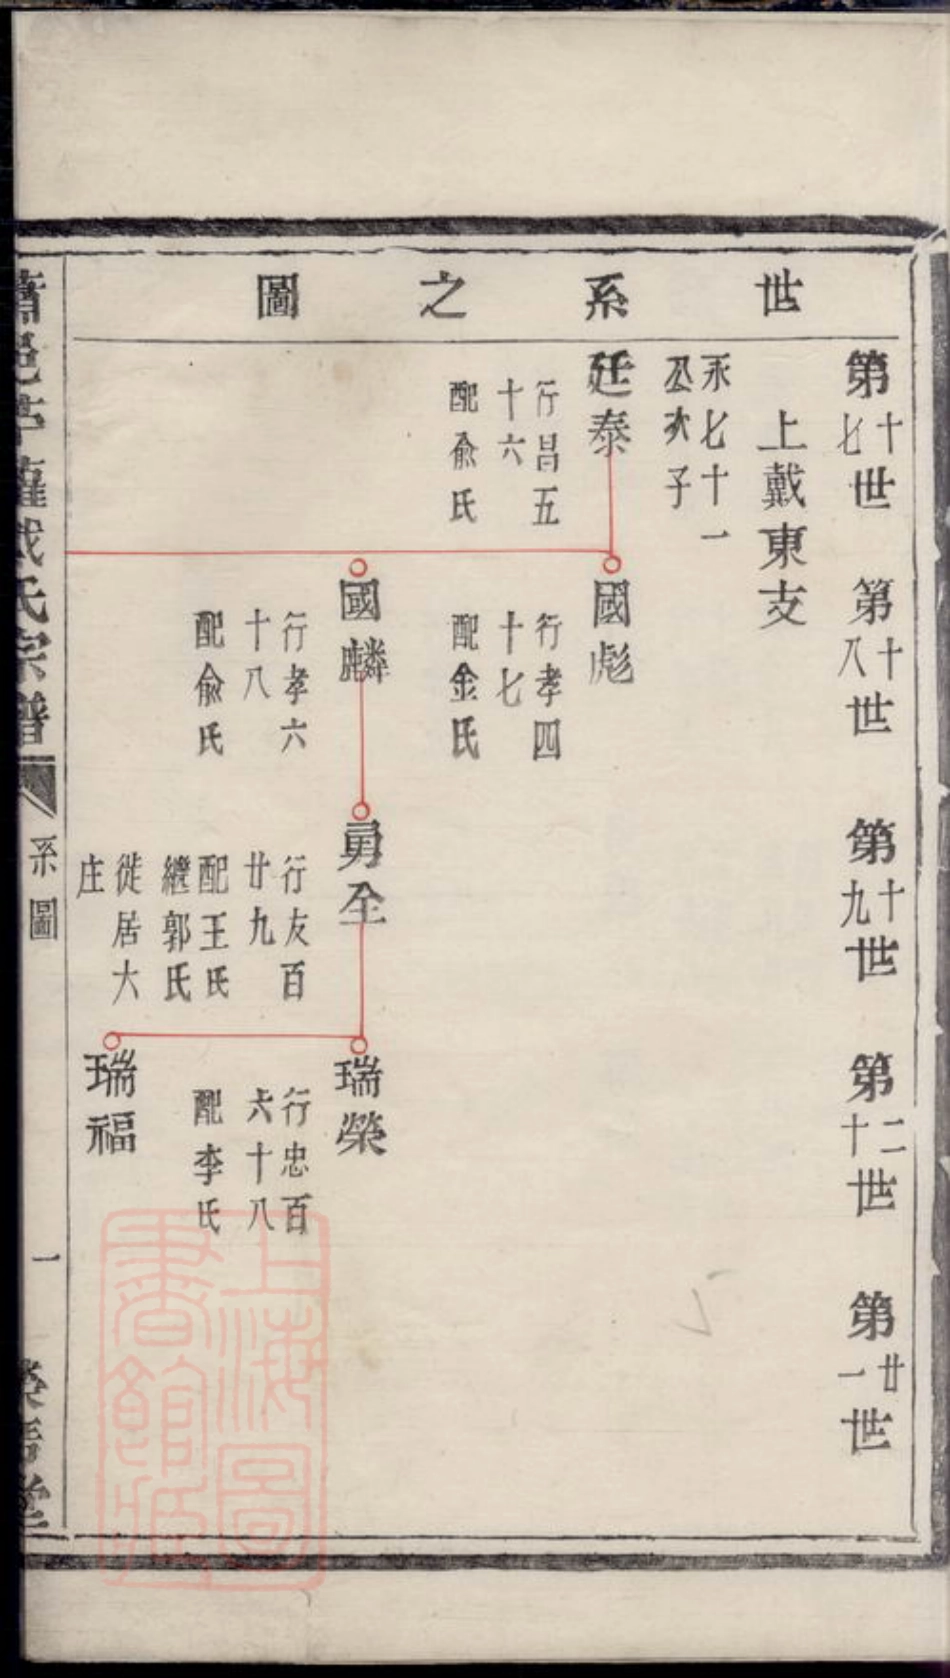 世系之圖
第十七世
第十八世
第十九世
第二十世
第廿一世
上戴東支
永七十一
公次子
廷泰
行昌五
十六
配俞氏
國彪
行孝四
十七
配金氏
國麟
行孝六
十八
配俞氏
勇全
行友百
廿九
配王氏
繼郭氏
徙居大
庄
瑞榮
行忠百
六十八
配李氏
瑞福
戴氏宗譜
系圖
一
上海圖
書館藏